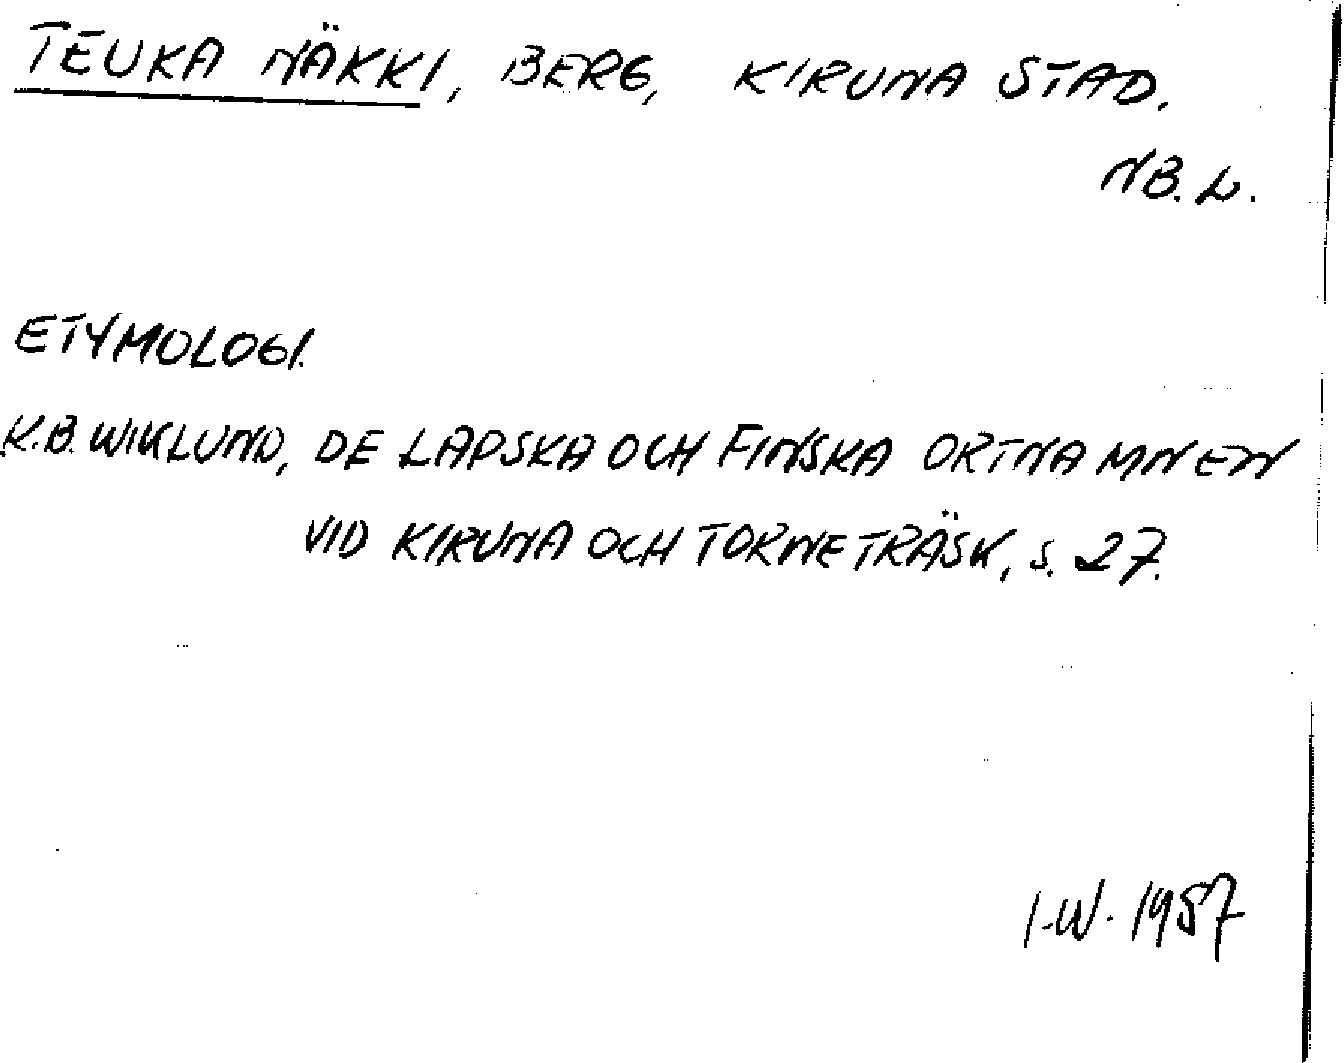 TEUKA NÄKKI, BERG, KIRUNA STAD.
NB. L.
ETYMOLOGI.
K.B. WIKLUND, DE LAPSKA OCH FINSKA ORTNAMNEN
VID KIRUNA OCH TORNETRÄSK, s. 27.
I.W. 1957